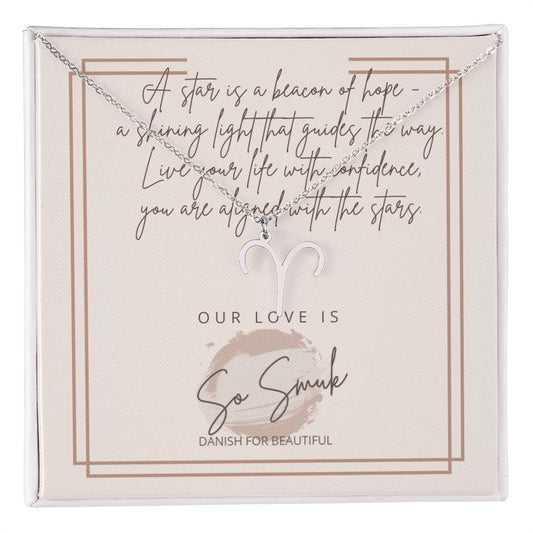 A star is a beacon of hope -
a shining light that guides the way.
Live your life with confidence,
you are aligned with the stars.
OUR LOVE IS
So Smuk
DANISH FOR BEAUTIFUL